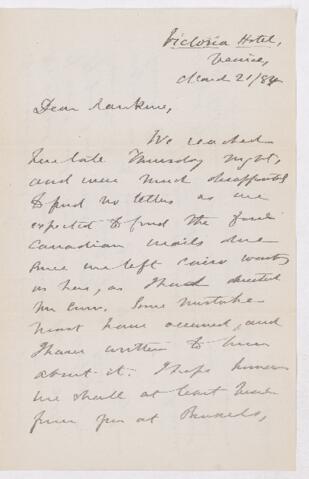 Victoria Hotel,
Venice,
March 21/84
Dear Rankine,
We reached
here late Thursday night,
and were much disappointed
to find no letters as we
expected to find the
Canadian mails due
since we left Cairo waiting
us here, as I had directed
Mr. Some mistake
must have occurred, and
I have written to him
about it. I hope however
we shall at least hear
from you at Brussels,